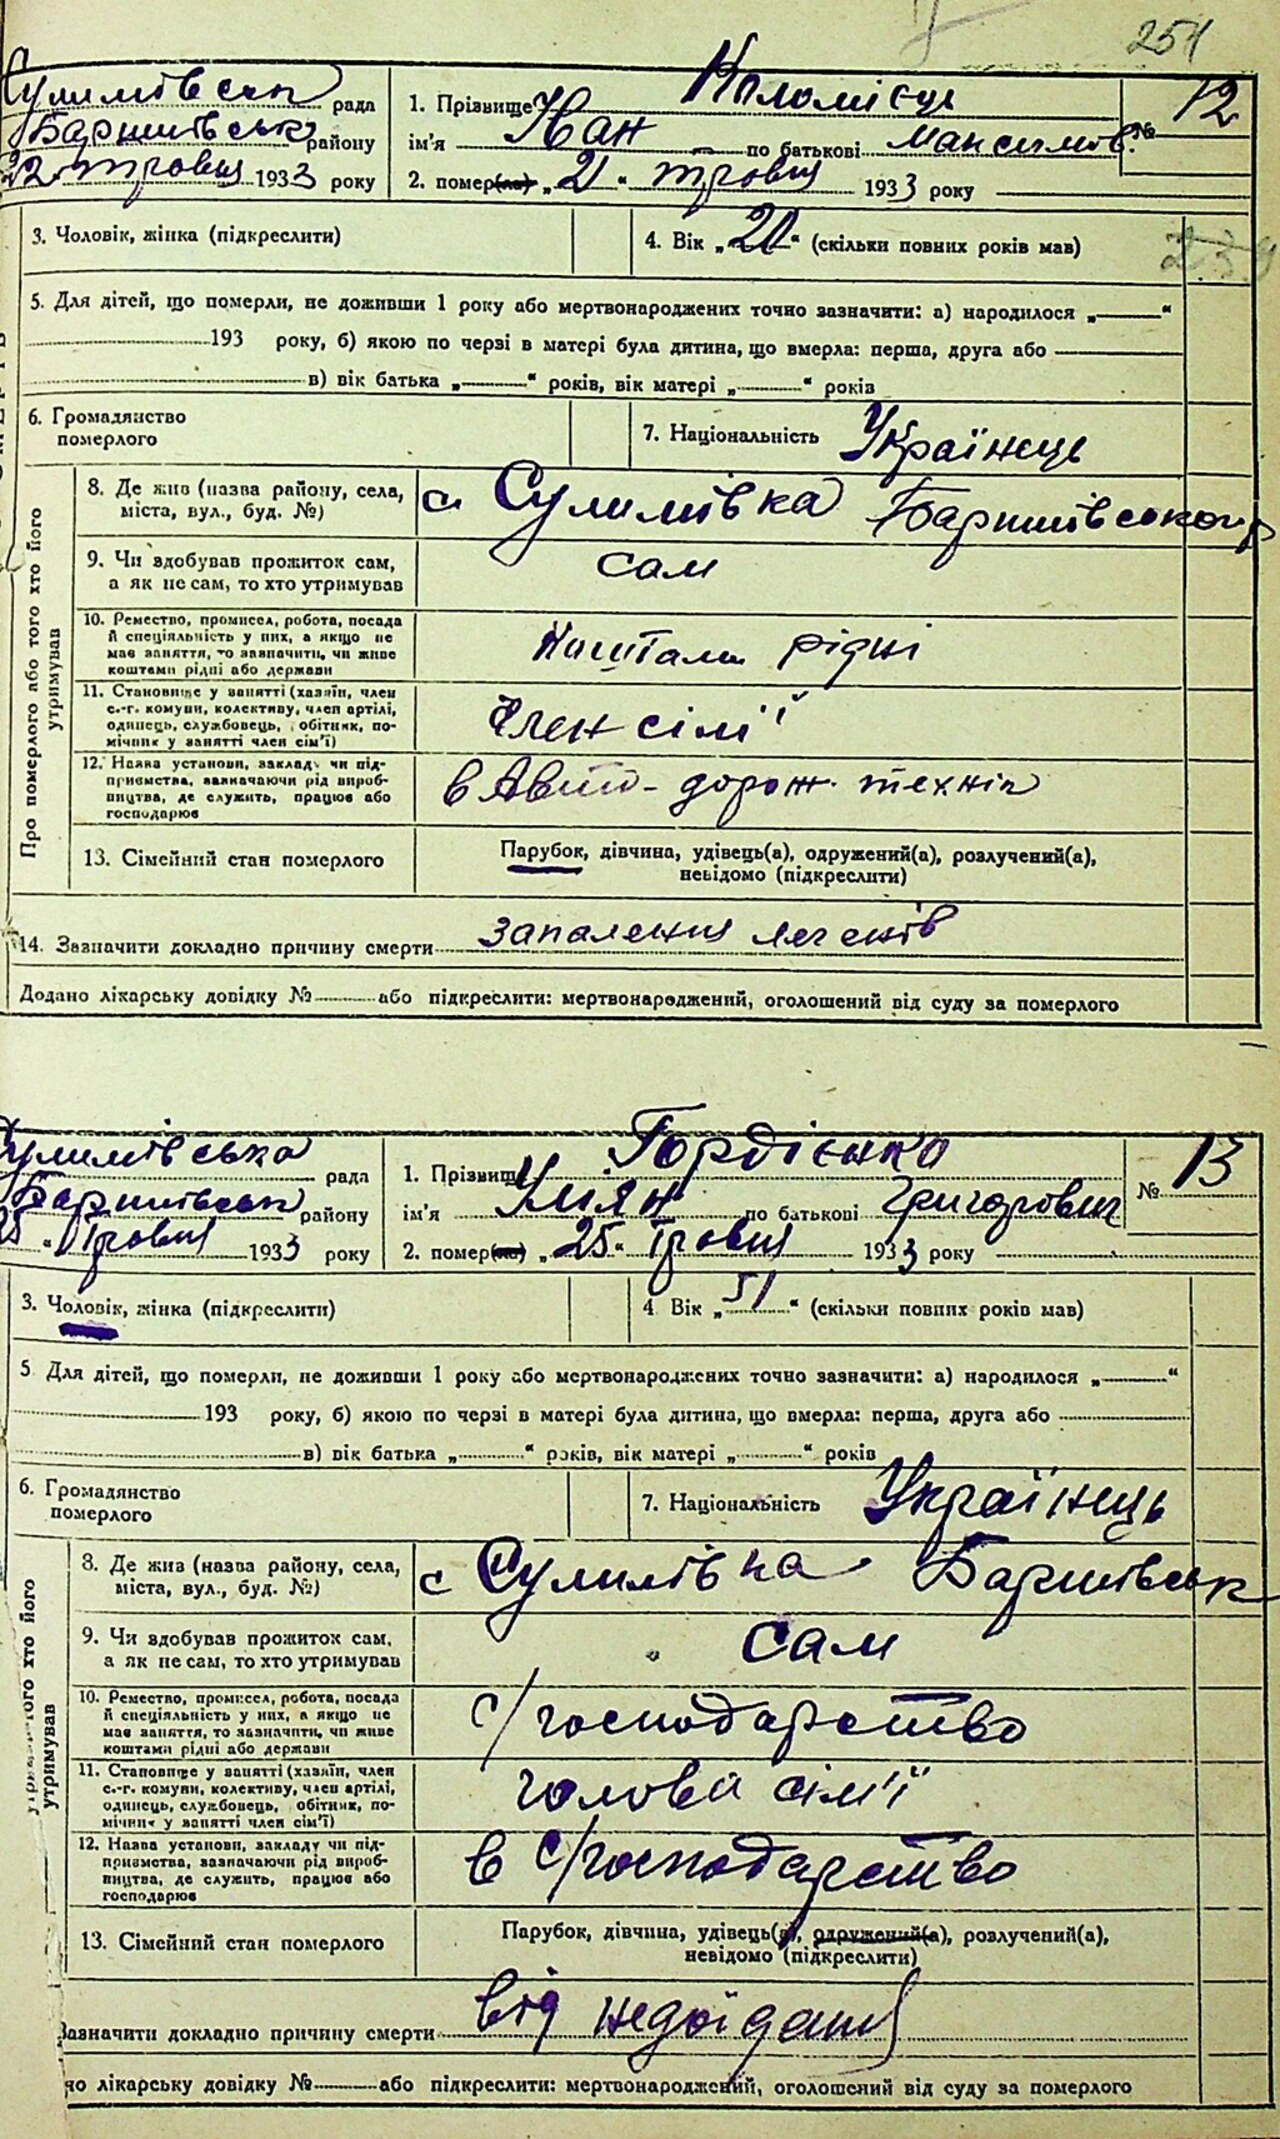 251
Сулимівська рада
Баришівськ району
22 травня 1933 року
1. Прізвище Коломієць
ім'я Іван по батькові Максимов.
№ 12
2. помер(ла) „21“ травня 1933 року
3. Чоловік, жінка (підкреслити)
4. Вік „20“ (скільки повних років мав)
5. Для дітей, що померли, не доживши 1 року або мертвонароджених точно зазначити: а) народилося „ “
193 року, б) якою по черзі в матері була дитина, що вмерла: перша, друга або
в) вік батька „ “ років, вік матері „ “ років
6. Громадянство
померлого
7. Національність Українець
Про померлого або того хто його
утримував
8. Де жив (назва району, села,
міста, вул., буд. №)
с Сулимівка Баришівського р
9. Чи здобував прожиток сам,
а як не сам, то хто утримував
сам
10. Ремество, промисел, робота, посада
й спеціяльність у них, а якщо не
має заняття, то зазначити, чи живе
коштами рідні або держави
коштами рідні
11. Становище у занятті (хазяїн, член
с.-г. комуни, колективу, член артілі,
одинець, службовець, обітник, по-
мічник у занятті член сім'ї)
Член сім'ї
12. Назва установи, закладу чи під-
приємства, зазначаючи рід вироб-
ництва, де служить, працює або
господарює
в Авто-дорож. технік
13. Сімейний стан померлого
Парубок, дівчина, удівець(а), одружений(а), розлучений(а),
невідомо (підкреслити)
14. Зазначити докладно причину смерти запалення легенів
Додано лікарську довідку № або підкреслити: мертвонароджений, оголошений від суду за померлого
Сулимівська рада
Баришівськ району
25 травня 1933 року
1. Прізвище Гордієнко
ім'я Улян по батькові Григорович
№ 13
2. помер(ла) „25“ травня 1933 року
3. Чоловік, жінка (підкреслити)
4. Вік „51“ (скільки повних років мав)
5 Для дітей, що померли, не доживши 1 року або мертвонароджених точно зазначити: а) народилося „ “
193 року, б) якою по черзі в матері була дитина, що вмерла: перша, друга або
в) вік батька „ “ років, вік матері „ “ років
6. Громадянство
померлого
7. Національність Українець
того хто його
утримував
8. Де жив (назва району, села,
міста, вул., буд. №)
с Сулимівка Баришівськ
9. Чи здобував прожиток сам,
а як не сам, то хто утримував
сам
10. Ремество, промисел, робота, посада
й спеціяльність у них, а якщо не
має заняття, то зазначити, чи живе
коштами рідні або держави
с/господарство
11. Становище у занятті (хазяїн, член
с.-г. комуни, колективу, член артілі,
одинець, службовець, обітник, по-
мічник у занятті член сім'ї)
голова сім'ї
12. Назва установи, закладу чи під-
приємства, зазначаючи рід вироб-
ництва, де служить, працює або
господарює
в с/господарство
13. Сімейний стан померлого
Парубок, дівчина, удівець(а), одружений(а), розлучений(а),
невідомо (підкреслити)
Зазначити докладно причину смерти від недоїдання
но лікарську довідку № або підкреслити: мертвонароджений, оголошений від суду за померлого